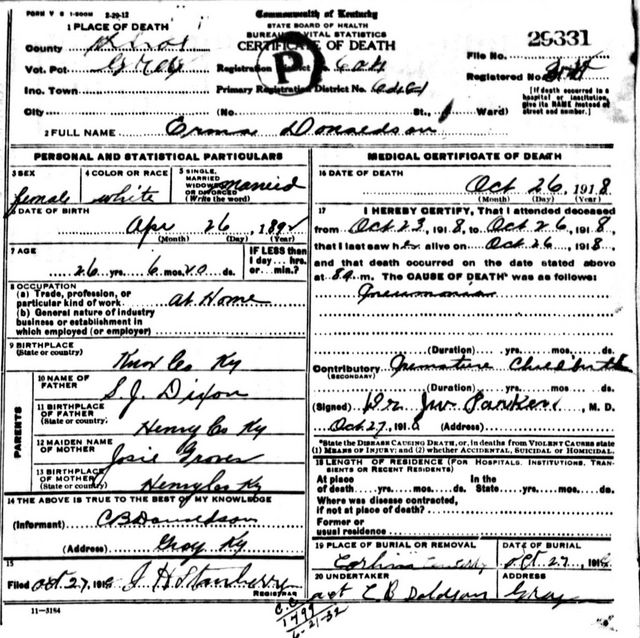 FORM V S 1-500M 2-29-12
Commonwealth of Kentucky
STATE BOARD OF HEALTH
BUREAU VITAL STATISTICS
CERTIFICATE OF DEATH
1 PLACE OF DEATH
County
Vot. Pct. Gray
Inc. Town
City
P
Registration District No.
Primary Registration District No.
(No. St., Ward)
File No. 29331
Registered No.
[If death occurred in a
hospital or institution,
give its NAME instead of
street and number.]
2 FULL NAME Erma Donaldson
PERSONAL AND STATISTICAL PARTICULARS
3 SEX
female
4 COLOR OR RACE
white
5 SINGLE,
MARRIED
WIDOWED
OR DIVORCED
(Write the word)
married
6 DATE OF BIRTH
Apr 26, 1892
(Month) (Day) (Year)
7 AGE
26 yrs. 6 mos. ds.
IF LESS than
1 day... hrs.
or... min.?
8 OCCUPATION
(a) Trade, profession, or
particular kind of work at Home
(b) General nature of industry
business or establishment in
which employed (or employer)
9 BIRTHPLACE
(State or country)
Knox Co Ky
PARENTS
10 NAME OF
FATHER
S. J. Dixon
11 BIRTHPLACE
OF FATHER
(State or country)
Henry Co Ky
12 MAIDEN NAME
OF MOTHER
Josie Groves
13 BIRTHPLACE
OF MOTHER
(State or country)
Henry Co Ky
14 THE ABOVE IS TRUE TO THE BEST OF MY KNOWLEDGE
(Informant) C B Donaldson
(Address) Gray Ky
15
Filed Oct. 27, 1918 J H Stanberry
REGISTRAR
11-3184
MEDICAL CERTIFICATE OF DEATH
16 DATE OF DEATH
Oct 26, 1918
(Month) (Day) (Year)
17 I HEREBY CERTIFY, That I attended deceased
from Oct 23, 1918, to Oct 26, 1918,
that I last saw her alive on Oct 26, 1918,
and that death occurred on the date stated above
at 8 a m. The CAUSE OF DEATH* was as follows:
Pneumonia
(Duration) yrs. mos. ds.
Contributory Premature Childbirth
(SECONDARY)
(Duration) yrs. mos. ds.
(Signed) Dr. J W Parker, M. D.
Oct 27, 1918 (Address)
*State the DISEASE CAUSING DEATH, or, in deaths from VIOLENT CAUSES state
(1) MEANS OF INJURY; and (2) whether ACCIDENTAL, SUICIDAL or HOMICIDAL.
18 LENGTH OF RESIDENCE (FOR HOSPITALS, INSTITUTIONS, TRAN-
SIENTS OR RECENT RESIDENTS)
At place In the
of death... yrs... mos... ds. State... yrs... mos... ds.
Where was disease contracted,
if not at place of death?
Former or
usual residence
19 PLACE OF BURIAL OR REMOVAL
Corbin
DATE OF BURIAL
Oct 27, 1918
20 UNDERTAKER
C B
ADDRESS
Gray
C.C.
1799
6-21-32